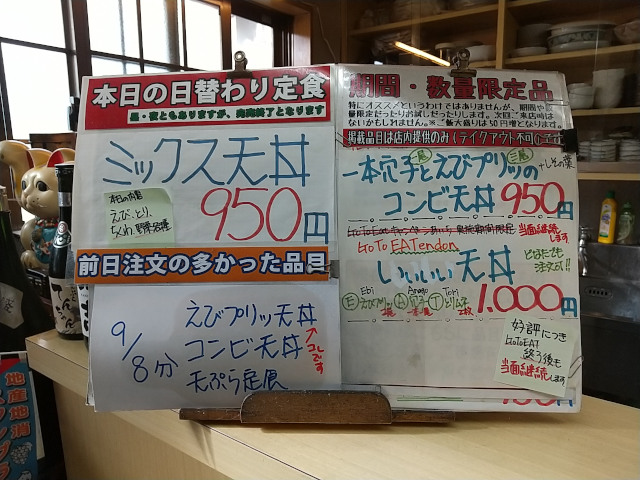 本日の日替わり定食
昼・夜ともありますが、完売終了となります
ミックス天丼
本日の内容
えび、とり、
ちくわ、野菜各種
950円
前日注文の多かった品目
9/8分
えびプリッ天丼
コンビ天丼
天ぷら定食
↑コレです
期間・数量限定品
特にオススメというわけではありませんが、期間や数
量限定だったりお試しだったりします。次回ご来店時は
ないかもしれません。※ご飯大盛りは50円増となります。
掲載品目は店内提供のみ(テイクアウト不可)です
一本穴子と②尾えびプリッの
コンビ天丼 950円
当面継続します
GoTo EATendon
いぃぃぃ天丼
1,000円
Ebi
Anago
Tori
E えびプリッ 2尾 A 穴子 一本 T とりムネ 2枚
好評につき
GoToEAT
終了後も
当面継続します
地産地消